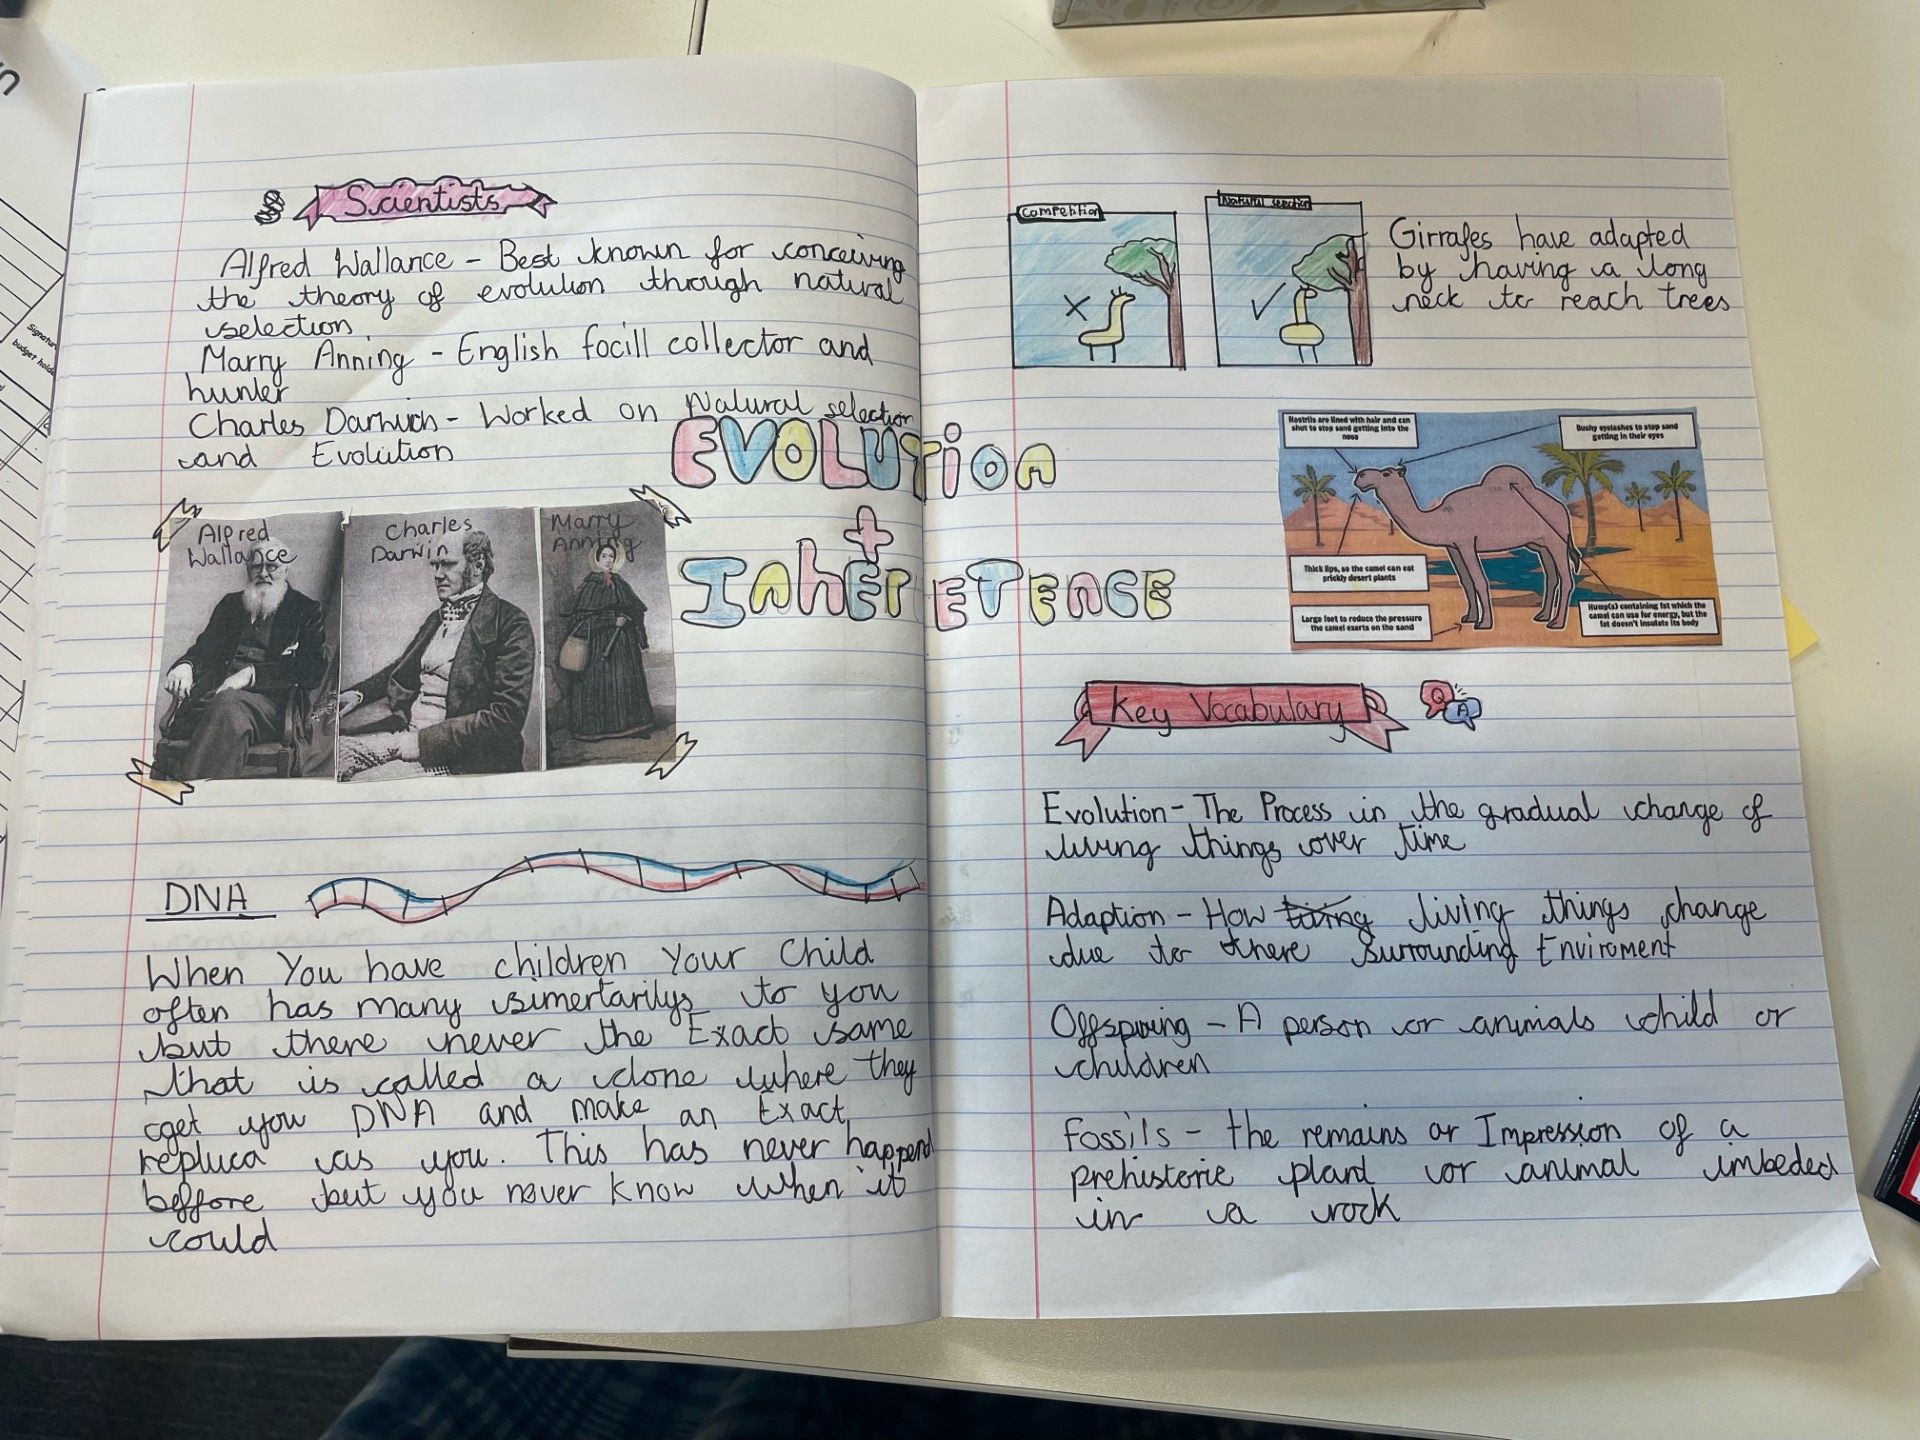 Scientists
Alfred Wallance - Best known for conceiving
the theory of evolution through natural
selection
Marry Anning - English focill collector and
hunter
Charles Darwin - Worked on Natural selection
and Evolution
EVOLUTion
+
InhErETEnCE
Alfred
Wallance
Charles
Darwin
Marry
Anning
DNA
When You have children Your Child
often has many simertarilys to you
but there never the Exact same
that is called a clone where they
get you DNA and make an Exact
replica as you. This has never happend
beffore but you never know when it
could
Competition
Natural selection
Girrafes have adapted
by having a long
neck to reach trees
Nostrils are lined with hair and can
shut to stop sand getting into the
nose
Bushy eyelashes to stop sand
getting in their eyes
Thick lips, so the camel can eat
prickly desert plants
Large feet to reduce the pressure
the camel exerts on the sand
Hump(s) containing fat which the
camel can use for energy, but the
fat doesn't insulate its body
Key Vocabulary
Q
A
Evolution - The Process in the gradual change of
living things over time
Adaption - How living living things change
due to there surrounding Enviroment
Offspring - A person or animals child or
children
Fossils - the remains or Impression of a
prehistoric plant or animal imbeded
in a rock